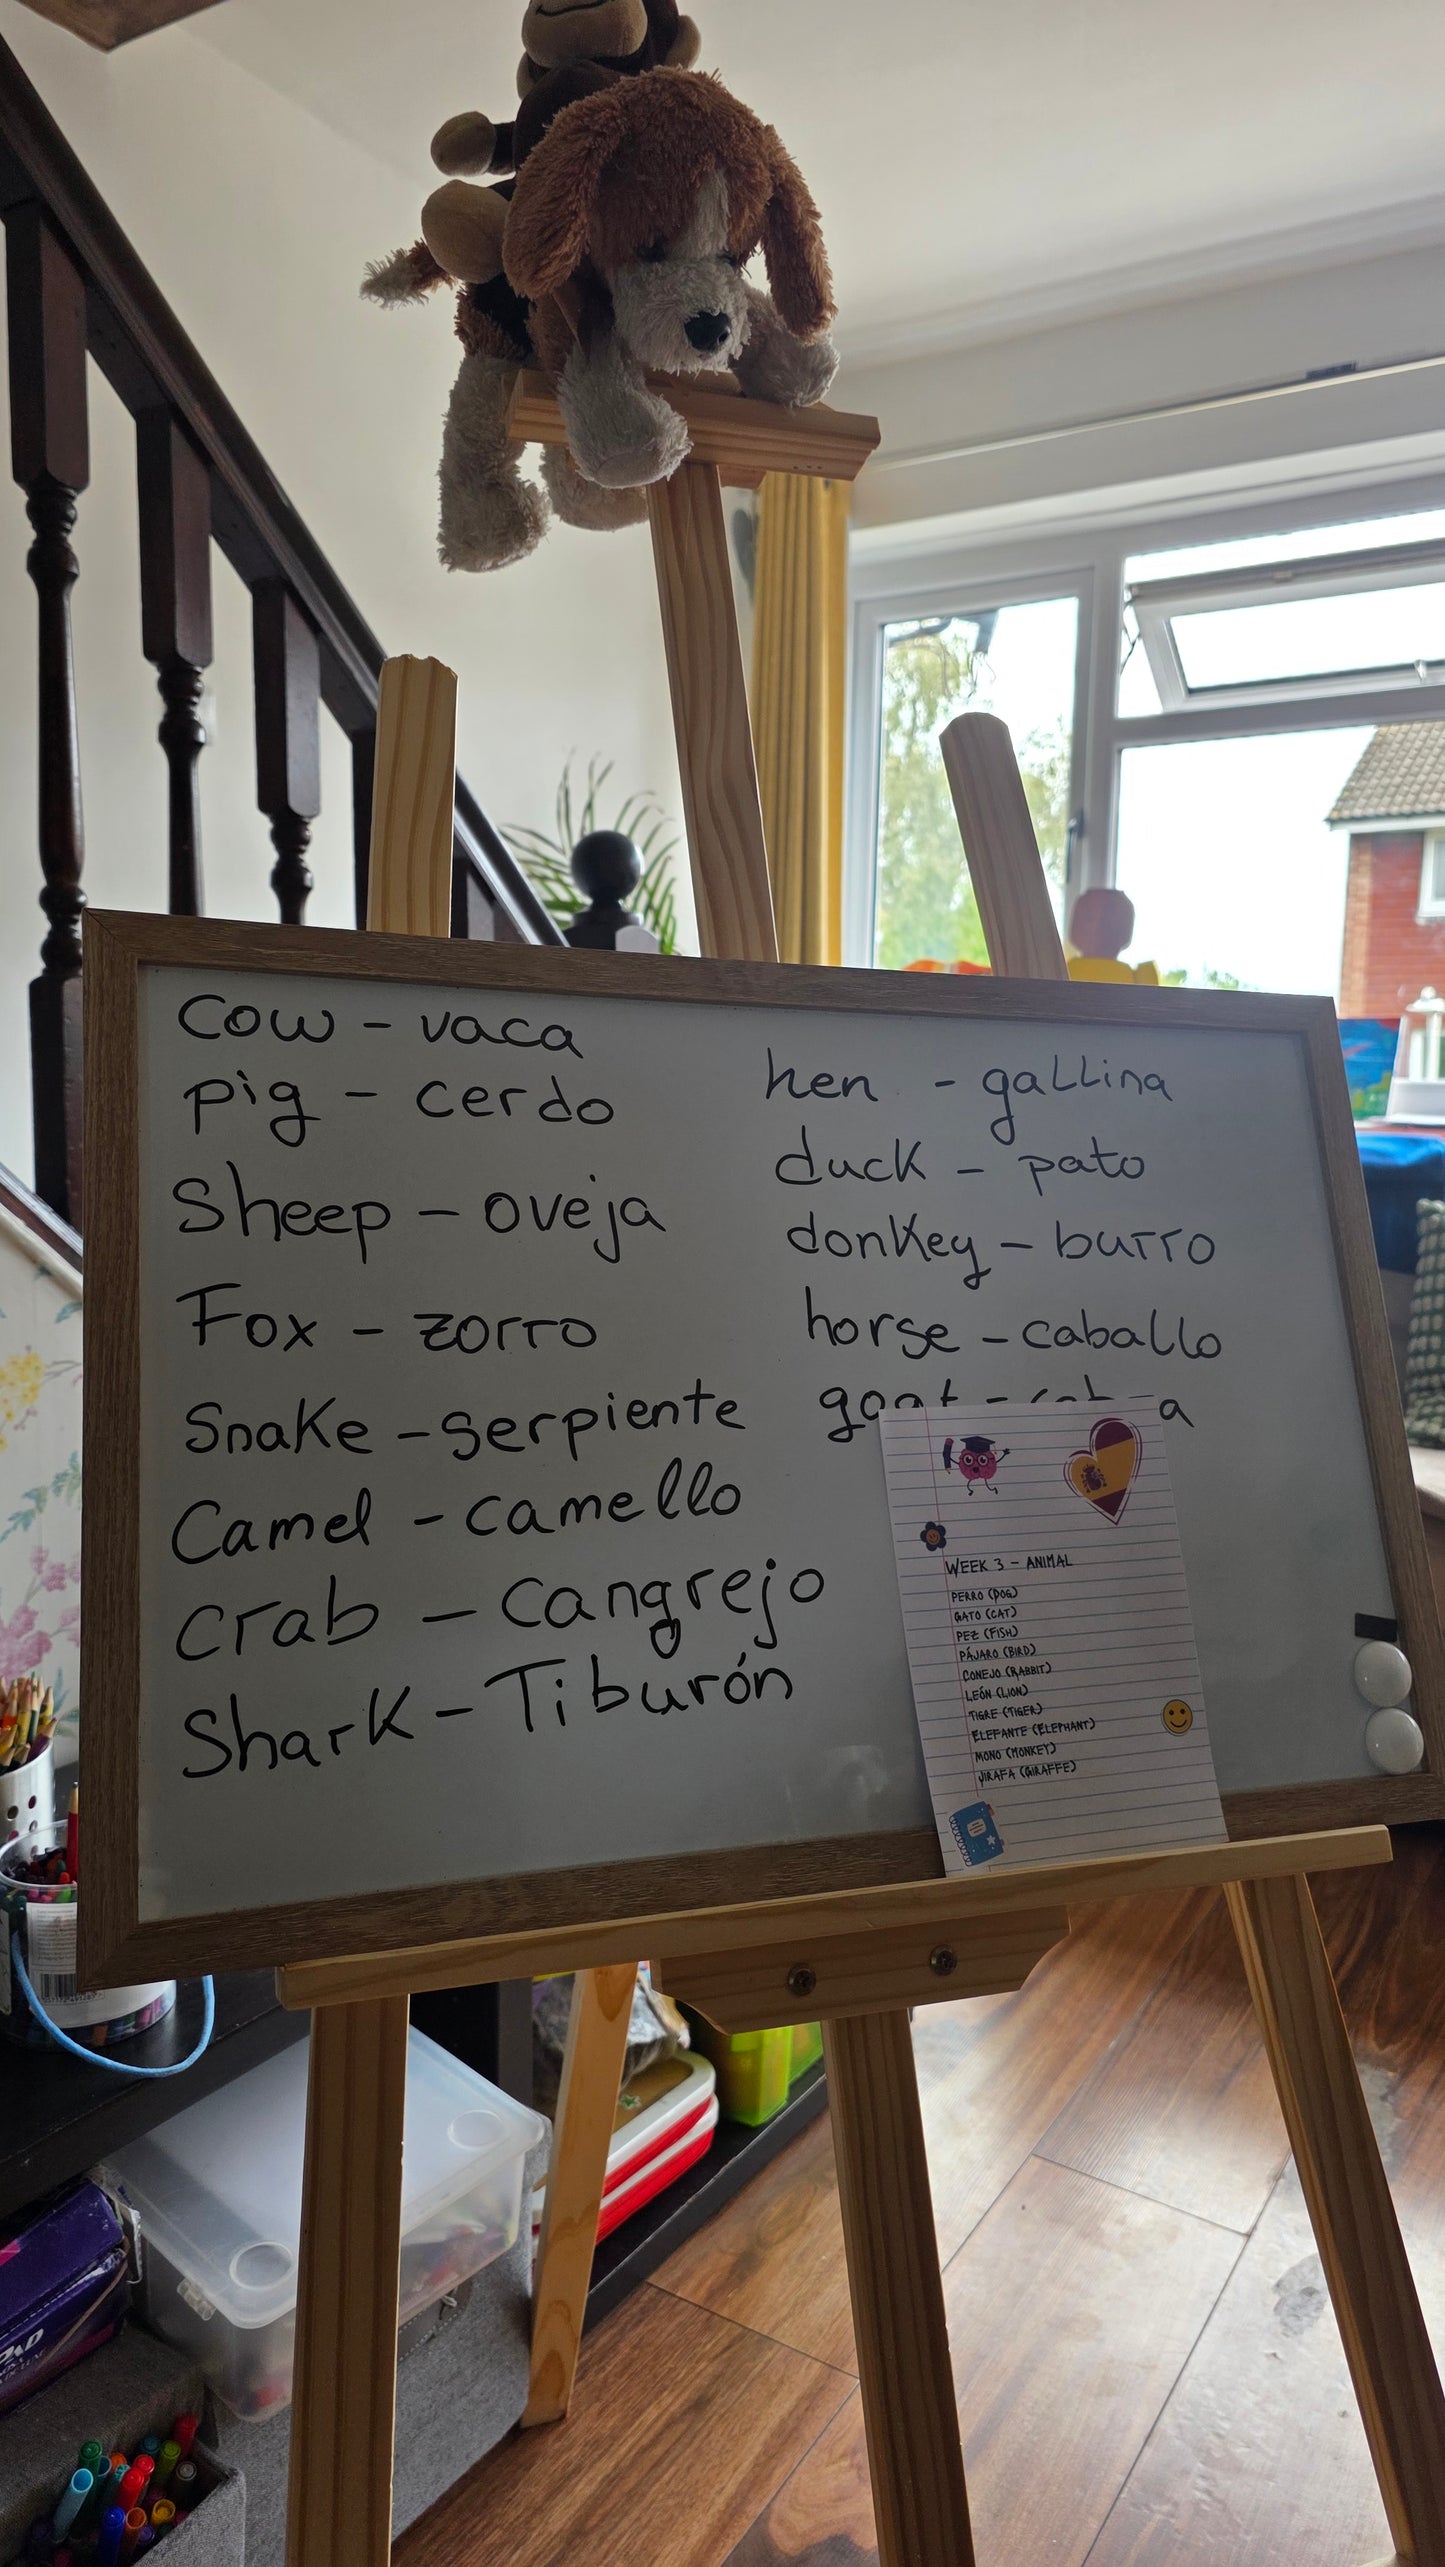 Cow - vaca
pig - cerdo
Sheep - oveja
Fox - zorro
Snake - serpiente
Camel - camello
Crab - Cangrejo
Shark - Tiburón
hen - gallina
duck - pato
donkey - burro
horse - caballo
goat -
WEEK 3 - ANIMAL
PERRO (DOG)
GATO (CAT)
PEZ (FISH)
PÁJARO (BIRD)
CONEJO (RABBIT)
LEÓN (LION)
TIGRE (TIGER)
ELEFANTE (ELEPHANT)
MONO (MONKEY)
JIRAFA (GIRAFFE)